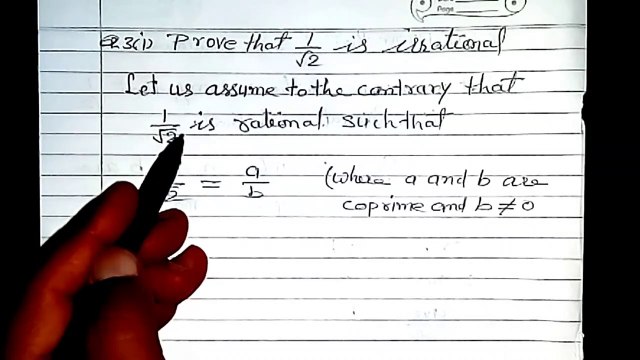 Q.3(i) Prove that 1/√2 is irrational
Let us assume to the contrary that
1/√2 is rational such that
= a/b (where a and b are
coprime and b ≠ 0